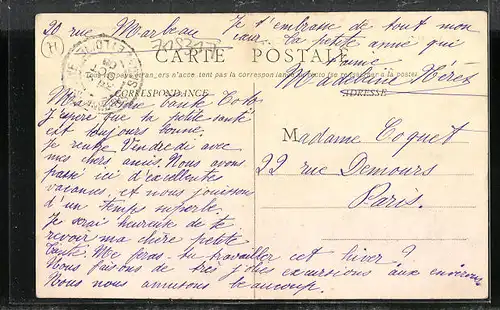 20 rue Marbeau
Je t'embrasse de tout mon
cœur. Ta petite amie qui
t'aime
Madeleine
H
718317
CARTE POSTALE
Tous les pays étrangers n'acceptent pas la correspondance
à la poste
CORRESPONDANCE
ADRESSE
Ma chère tante Toto
J'espère que ta petite santé
est toujours bonne.
Je rentre Vendredi avec
mes chers amis. Nous avons
passé ici d'excellentes
vacances, et nous jouissons
d'un temps superbe.
Je serai heureuse de te
revoir ma chère petite
tante. Me feras-tu travailler cet hiver ?
Nous faisons de très jolies excursions aux environs
Nous nous amusons beaucoup.
Madame Coquet
22 rue Demours
Paris.